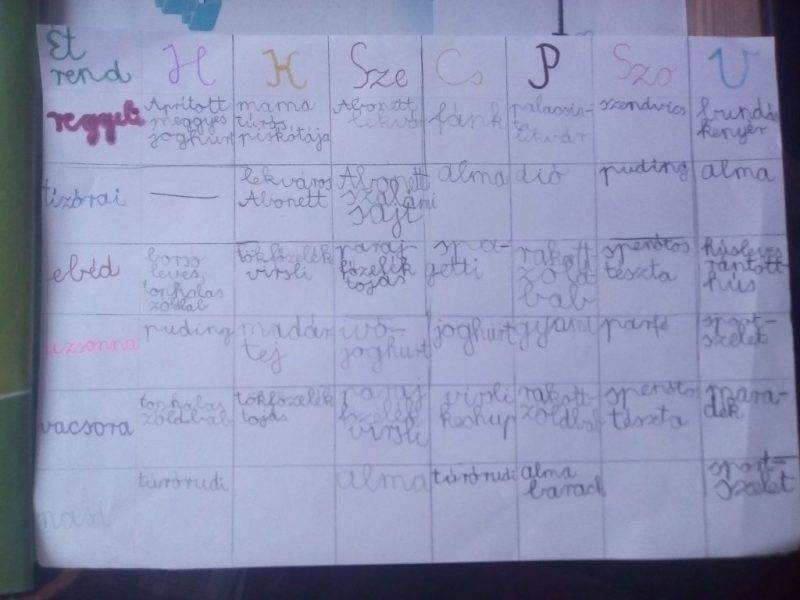 Ét
rend
H
K
Sze
Cs
P
Szo
V
reggeli
Aprított
meggyes
joghurt
mama
túrós
piskótája
Abonett
lekvár
fánk
palacsin-
ta
lekvár
szendvics
bundás
kenyér
tízórai
lekváros
Abonett
Abonett
szalámi
sajt
alma
dió
puding
alma
ebéd
borsó
leves,
tonhalas
zöldbab
tökfőzelék
virsli
paraj-
főzelék
tojás
spa-
getti
rakott
zöld
bab
spenótos
tészta
húsleves
rántott-
hús
uzsonna
puding
madár
tej
ivó-
joghurt
joghurt
gyümi
parfé
sport-
szelet
vacsora
tonhalas
zöldbab
tökfőzelék
tojás
paraj
főzelék
virsli
virsli
kechup
rakott
zöldbab
spenótos
tészta
mara-
dék
nasi
túrórudi
alma
túrórudi
alma
barack
sport-
szelet